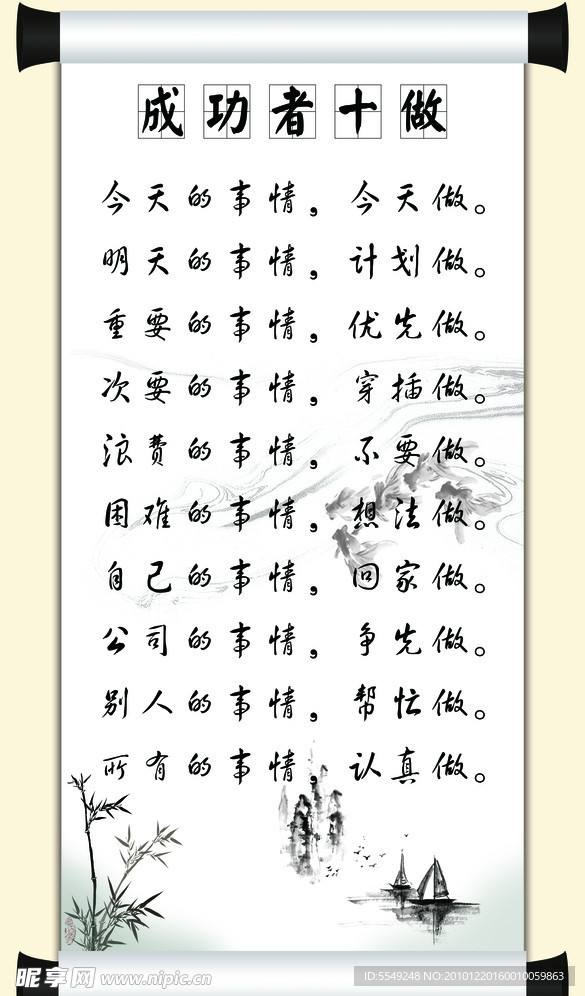 成功者十做
今天的事情，今天做。
明天的事情，计划做。
重要的事情，优先做。
次要的事情，穿插做。
浪费的事情，不要做。
困难的事情，想法做。
自己的事情，回家做。
公司的事情，争先做。
别人的事情，帮忙做。
所有的事情，认真做。
昵享网 www.nipic.cn
ID:5549248 NO:20101220160010059863